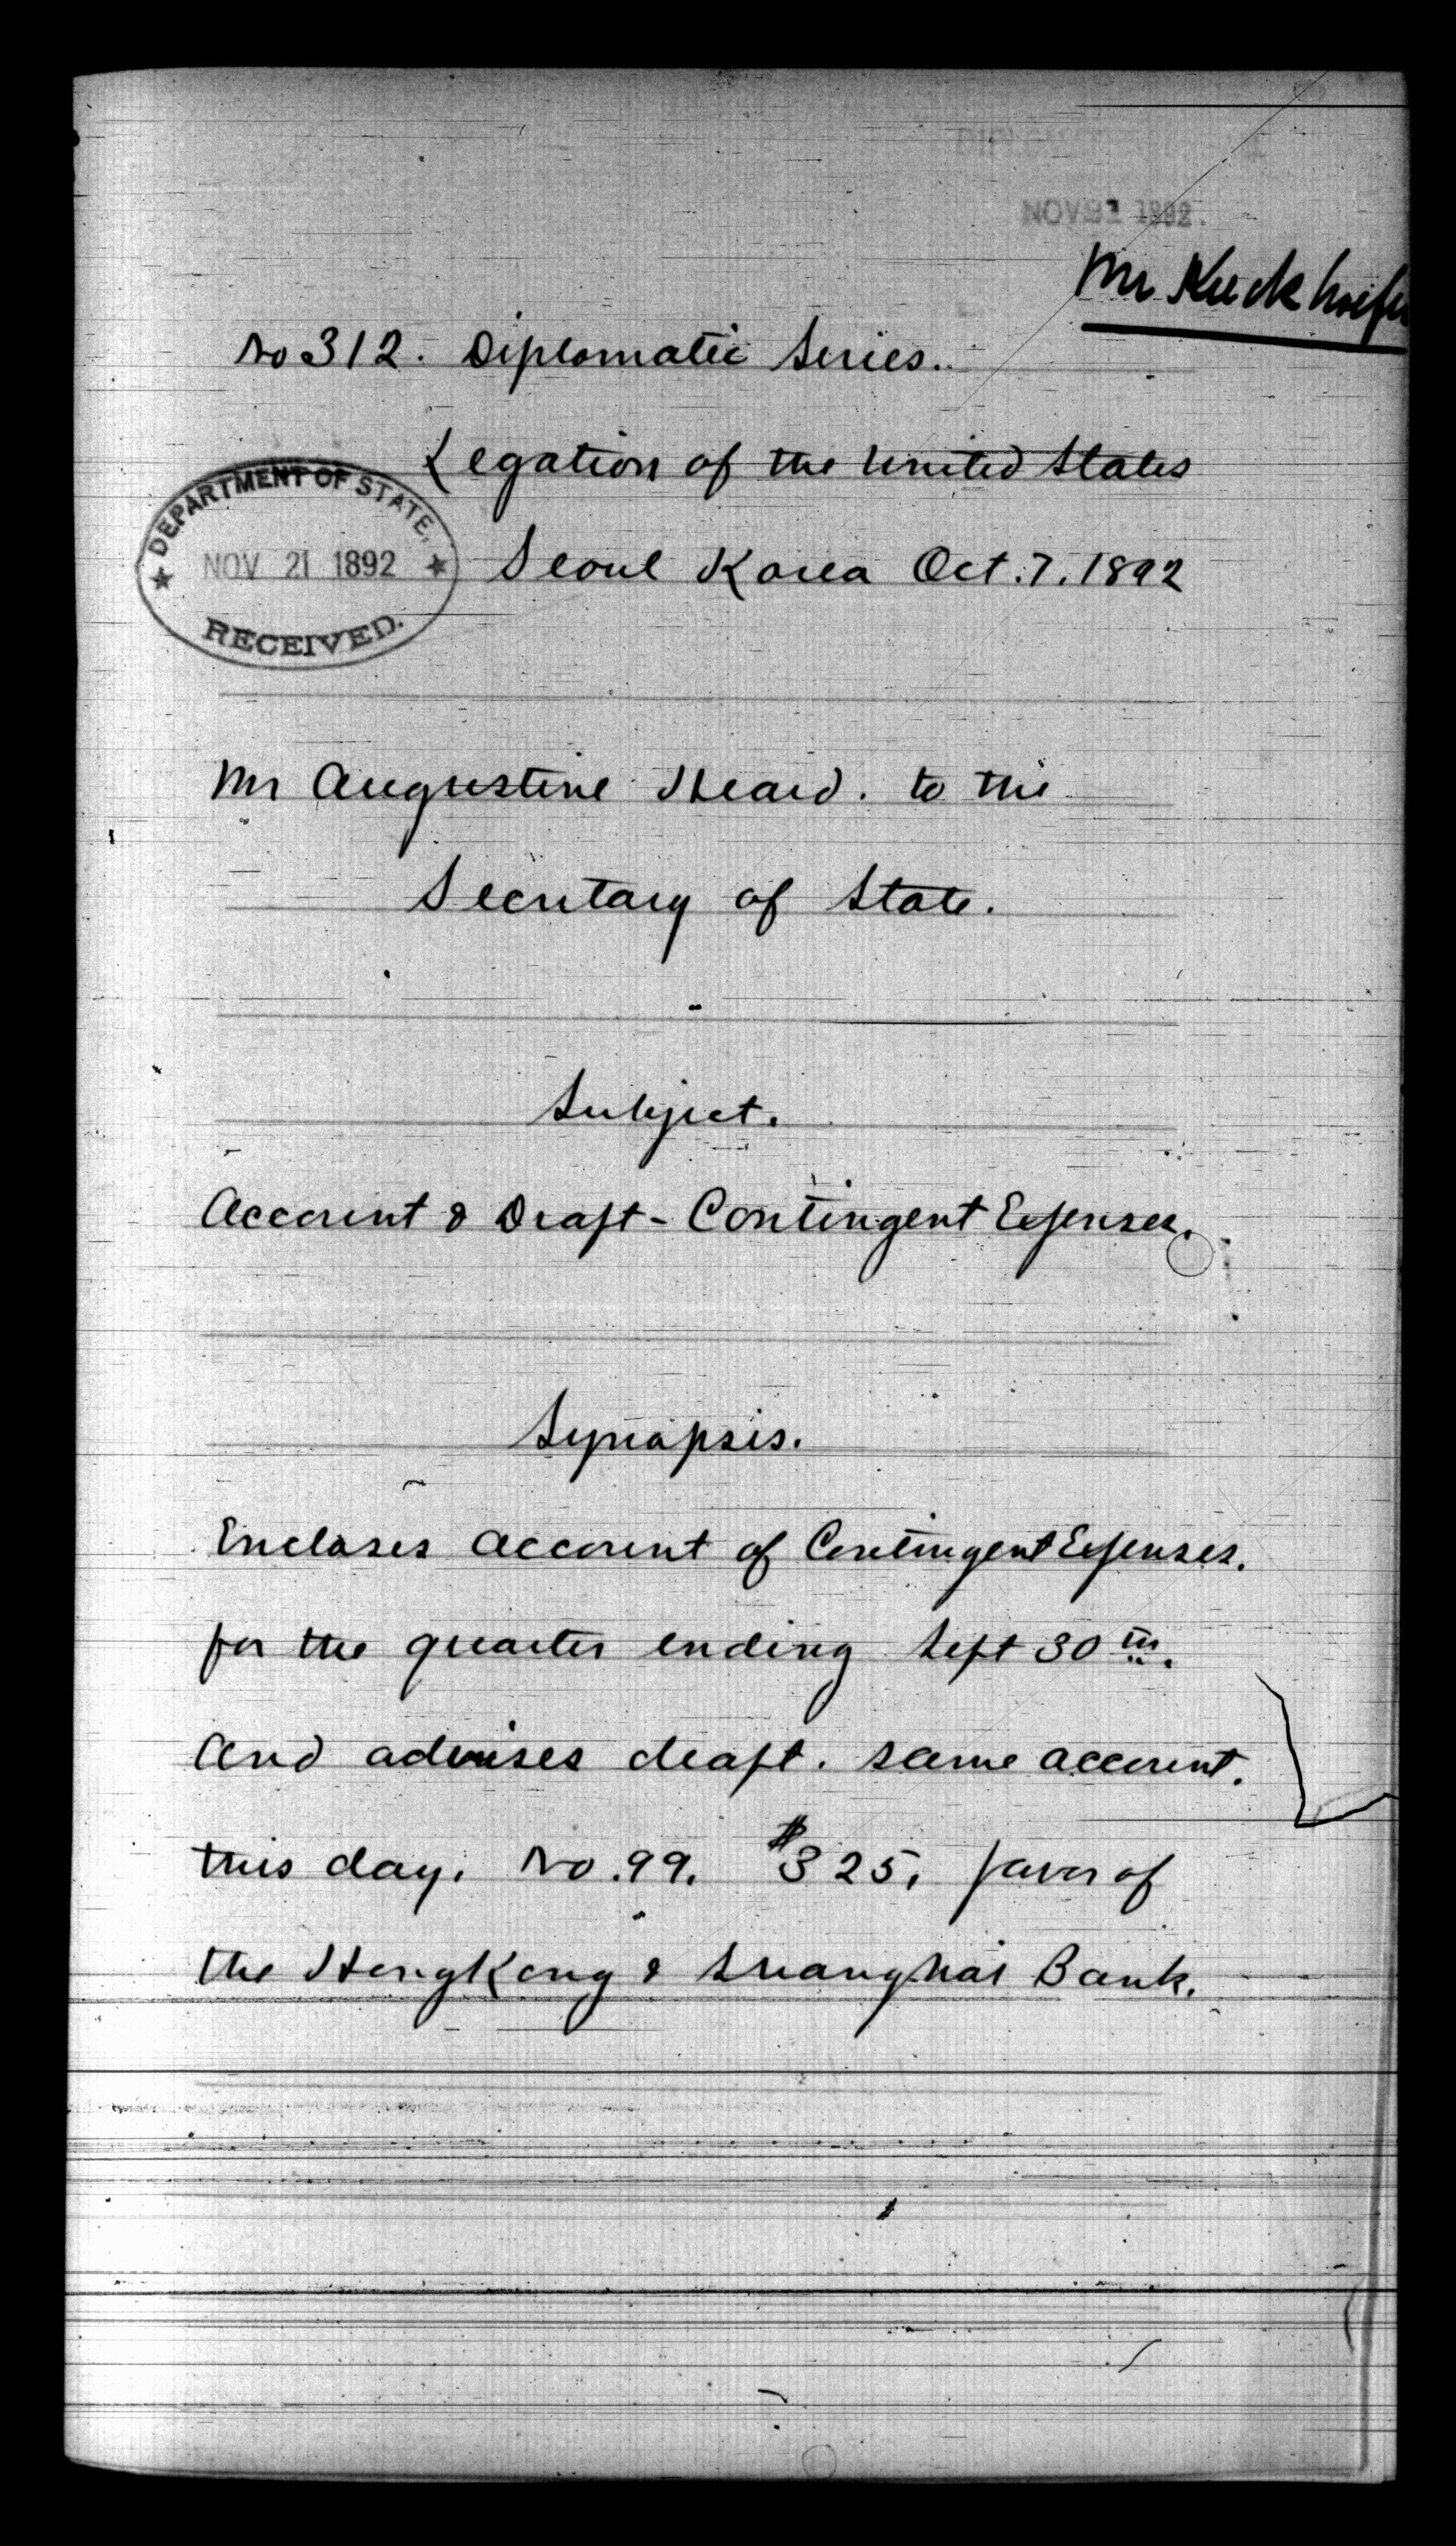 NOV 21 1892.
Mr Kieckhoefer
No 312. Diplomatic Series.
Legation of the United States
DEPARTMENT OF STATE,
NOV 21 1892
RECEIVED.
Seoul Korea Oct. 7. 1892
Mr Augustine Heard. to the
Secretary of State.
Subject.
Account & Draft - Contingent Expenses.
Synopsis.
Encloses account of Contingent Expenses.
for the quarter ending Sept 30th.
and advises draft. same account.
this day. No. 99. $325, favor of
the HongKong & Shanghai Bank.